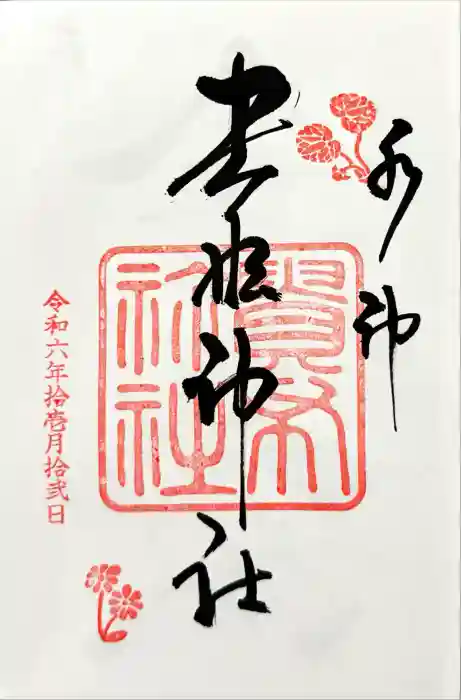 水神
貴船神社
貴布祢社
令和六年拾壱月拾弐日